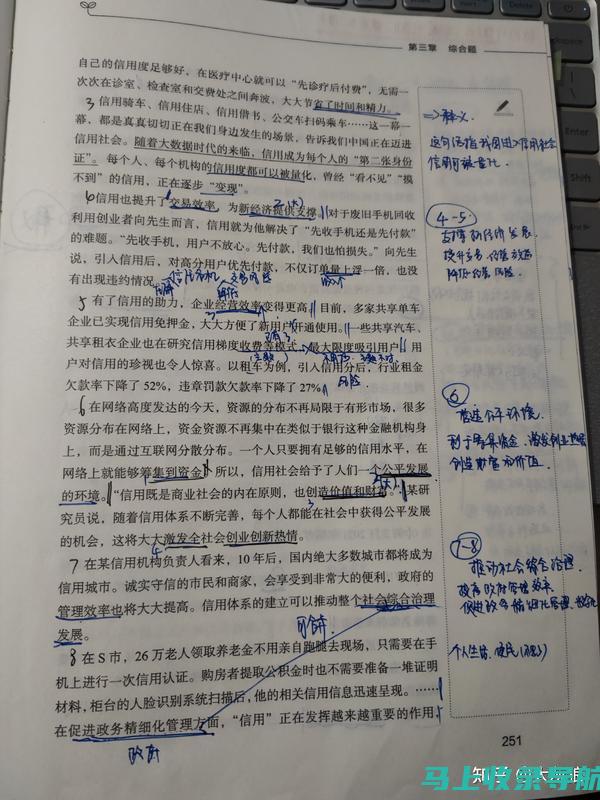 第三章 综合题
自己的信用度足够好，在医疗中心就可以“先诊疗后付费”，无需一
次次在诊室、检查室和交费处之间奔波，大大节省了时间和精力。
3 信用骑车、信用住店、信用借书、公交车扫码乘车……这一幕一
幕，都是真真切切正在我们身边发生的场景，告诉我们中国正在迈进
信用社会。随着大数据时代的来临，信用成为每个人的“第二张身份
证”。每个人、每个机构的信用度都可以被量化，曾经“看不见”“摸
不到”的信用，正在逐步“变现”。
4 信用也提升了交易效率，为新经济提供支撑。对于废旧手机回收
利用创业者向先生而言，信用就为他解决了“先收手机还是先付款”
的难题。“先收手机，用户不放心。先付款，我们也怕损失。”向先生
说，引入信用后，对高分用户优先付款，不仅订单量上浮一倍，也没
有出现违约情况
5 有了信用的助力，企业经营效率变得更高。目前，多家共享单车
企业已实现信用免押金，大大方便了新用户开通使用。一些共享汽车、
共享租衣企业也在研究信用梯度收费等模式，最大限度吸引用户。用
户对信用的珍视也令人惊喜。以租车为例，引入信用分后，行业租金
欠款率下降了52%，违章罚款欠款率下降了27%。
风险
6 在网络高度发达的今天，资源的分布不再局限于有形市场，很多
资源分布在网络上，资金资源不再集中在类似于银行这种金融机构身
上，而是通过互联网分散分布。一个人只要拥有足够的信用水平，在
网络上就能够筹集到资金。所以，信用社会给予了人们一个公平发展
的环境。“信用既是商业社会的内在原则，也创造价值和财富。”某研
究员说，随着信用体系不断完善，每个人都能在社会中获得公平发展
的机会，这将大大激发全社会创业创新热情。
7 在某信用机构负责人看来，10年后，国内绝大多数城市都将成为
信用城市。诚实守信的市民和商家，会享受到非常大的便利，政府的
管理效率也将大大提高。信用体系的建立可以推动整个社会综合治理
发展。
可合并
8 在S市，26万老人领取养老金不用亲自跑腿去现场，只需要在手
机上进行一次信用认证。购房者提取公积金时也不需要准备一堆证明
材料，柜台的人脸识别系统扫描后，他的相关信用信息迅速呈现。……
在促进政务精细化管理方面，“信用”正在发挥越来越重要的作用，
政府
=> 释义
这句话指我国进入信用社会
信用可被量化.
4-5
支撑新经济发展.
提升交易、经营效率
降低经营风险.
6
营造公平环境.
利于筹集资金、激发创业热情
创造财富和价值.
7-8
推动社会综合治理.
提高政府管理效率.
个人生活.便民
251
知乎
马上收录导航